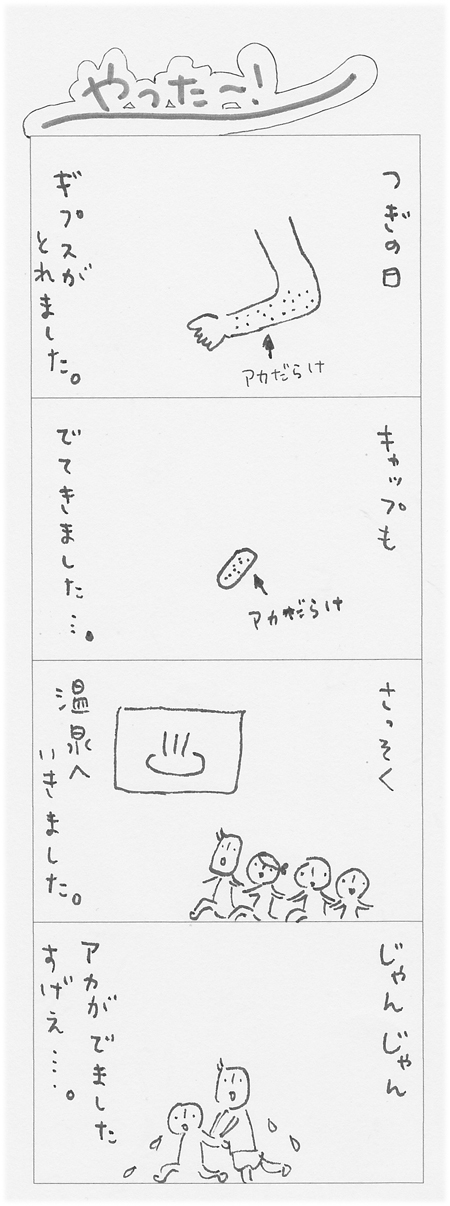 やったー!
つぎの日
アカだらけ
ギプスが
とれました。
キャップも
アカだらけ
でてきました…。
さっそく
温泉へ
いきました。
じゃんじゃん
アカがでました
すげえ….。